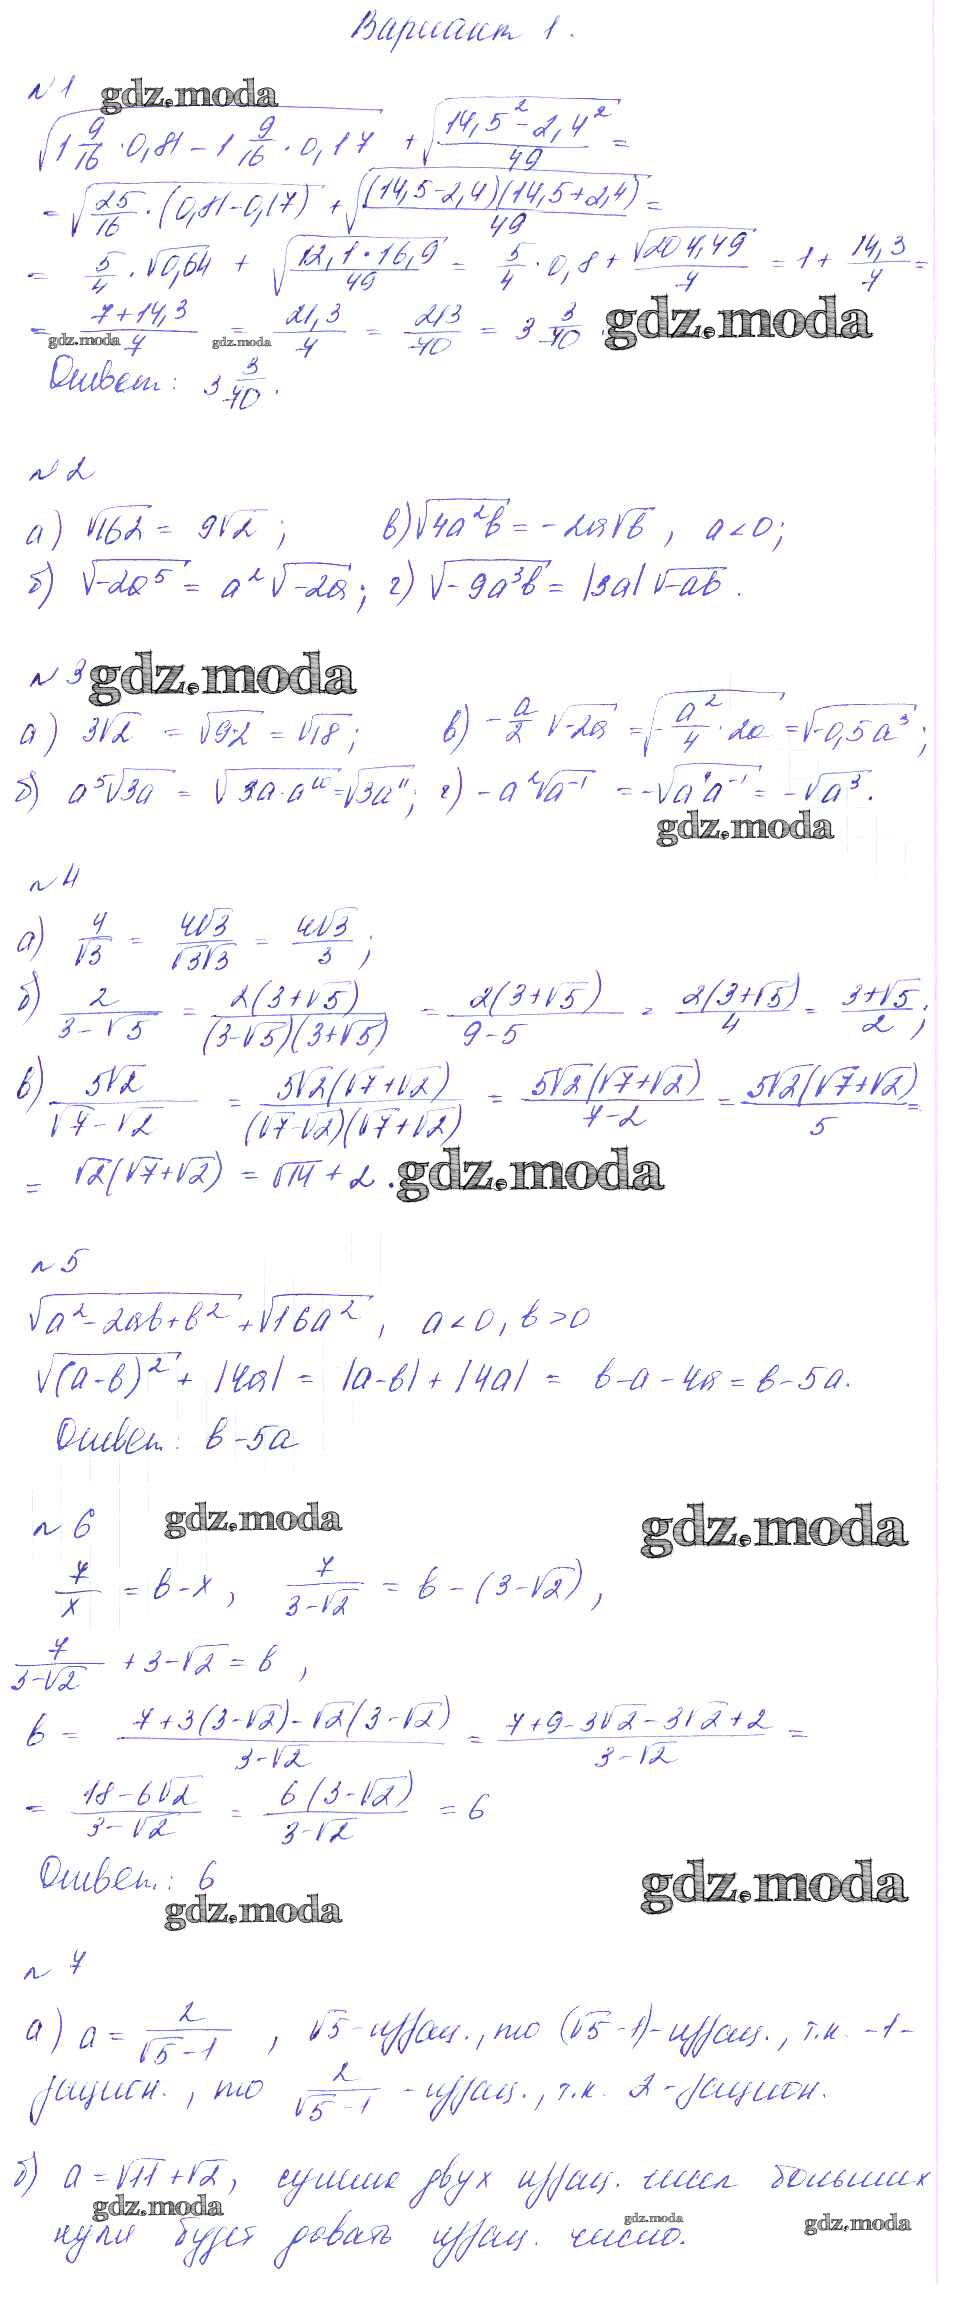 Вариант 1.
№1 gdz.moda
√(1 9/16 · 0,81 − 1 9/16 · 0,17) + √((14,5² − 2,4²)/49) =
= √(25/16 · (0,81 − 0,17)) + √((14,5 − 2,4)(14,5 + 2,4)/49) =
= 5/4 · √0,64 + √(12,1 · 16,9/49) = 5/4 · 0,8 + √204,49/7 = 1 + 14,3/7 =
= (7 + 14,3)/7 = 21,3/7 = 213/70 = 3 3/70. gdz.moda
gdz.moda gdz.moda
Ответ: 3 3/70.
№2
а) √162 = 9√2; в) √(4a²b) = −2a√b, a < 0;
б) √(−2a⁵) = a²√(−2a); г) √(−9a³b) = |3a|√(−ab).
№3 gdz.moda
а) 3√2 = √(9·2) = √18; в) −a/2 √(−2a) = √(−a²/4 · 2a) = √(−0,5a³);
б) a⁵√(3a) = √(3a·a¹⁰) = √(3a¹¹); г) −a²√(a⁻¹) = −√(a⁴a⁻¹) = −√(a³).
gdz.moda
№4
а) 4/√3 = 4√3/(√3√3) = 4√3/3;
б) 2/(3−√5) = 2(3+√5)/((3−√5)(3+√5)) = 2(3+√5)/(9−5) = 2(3+√5)/4 = (3+√5)/2;
в) 5√2/(√7−√2) = 5√2(√7+√2)/((√7−√2)(√7+√2)) = 5√2(√7+√2)/(7−2) = 5√2(√7+√2)/5 =
= √2(√7+√2) = √14 + 2. gdz.moda
№5
√(a² − 2ab + b²) + √(16a²), a < 0, b > 0
√((a−b)²) + |4a| = |a−b| + |4a| = b − a − 4a = b − 5a.
Ответ: b − 5a
№6 gdz.moda gdz.moda
7/x = b − x, 7/(3−√2) = b − (3−√2),
7/(3−√2) + 3 − √2 = b,
b = (7 + 3(3−√2) − √2(3−√2))/(3−√2) = (7 + 9 − 3√2 − 3√2 + 2)/(3−√2) =
= (18 − 6√2)/(3−√2) = 6(3−√2)/(3−√2) = 6
Ответ: 6 gdz.moda
gdz.moda
№7
а) a = 2/(√5−1), √5 − иррац., то (√5−1) − иррац., т.к. −1 −
рацион., то 2/(√5−1) − иррац., т.к. 2 − рацион.
б) a = √11 + √2, сумма двух иррац. чисел больших
gdz.moda gdz.moda gdz.moda
нуля будет давать иррац. число.